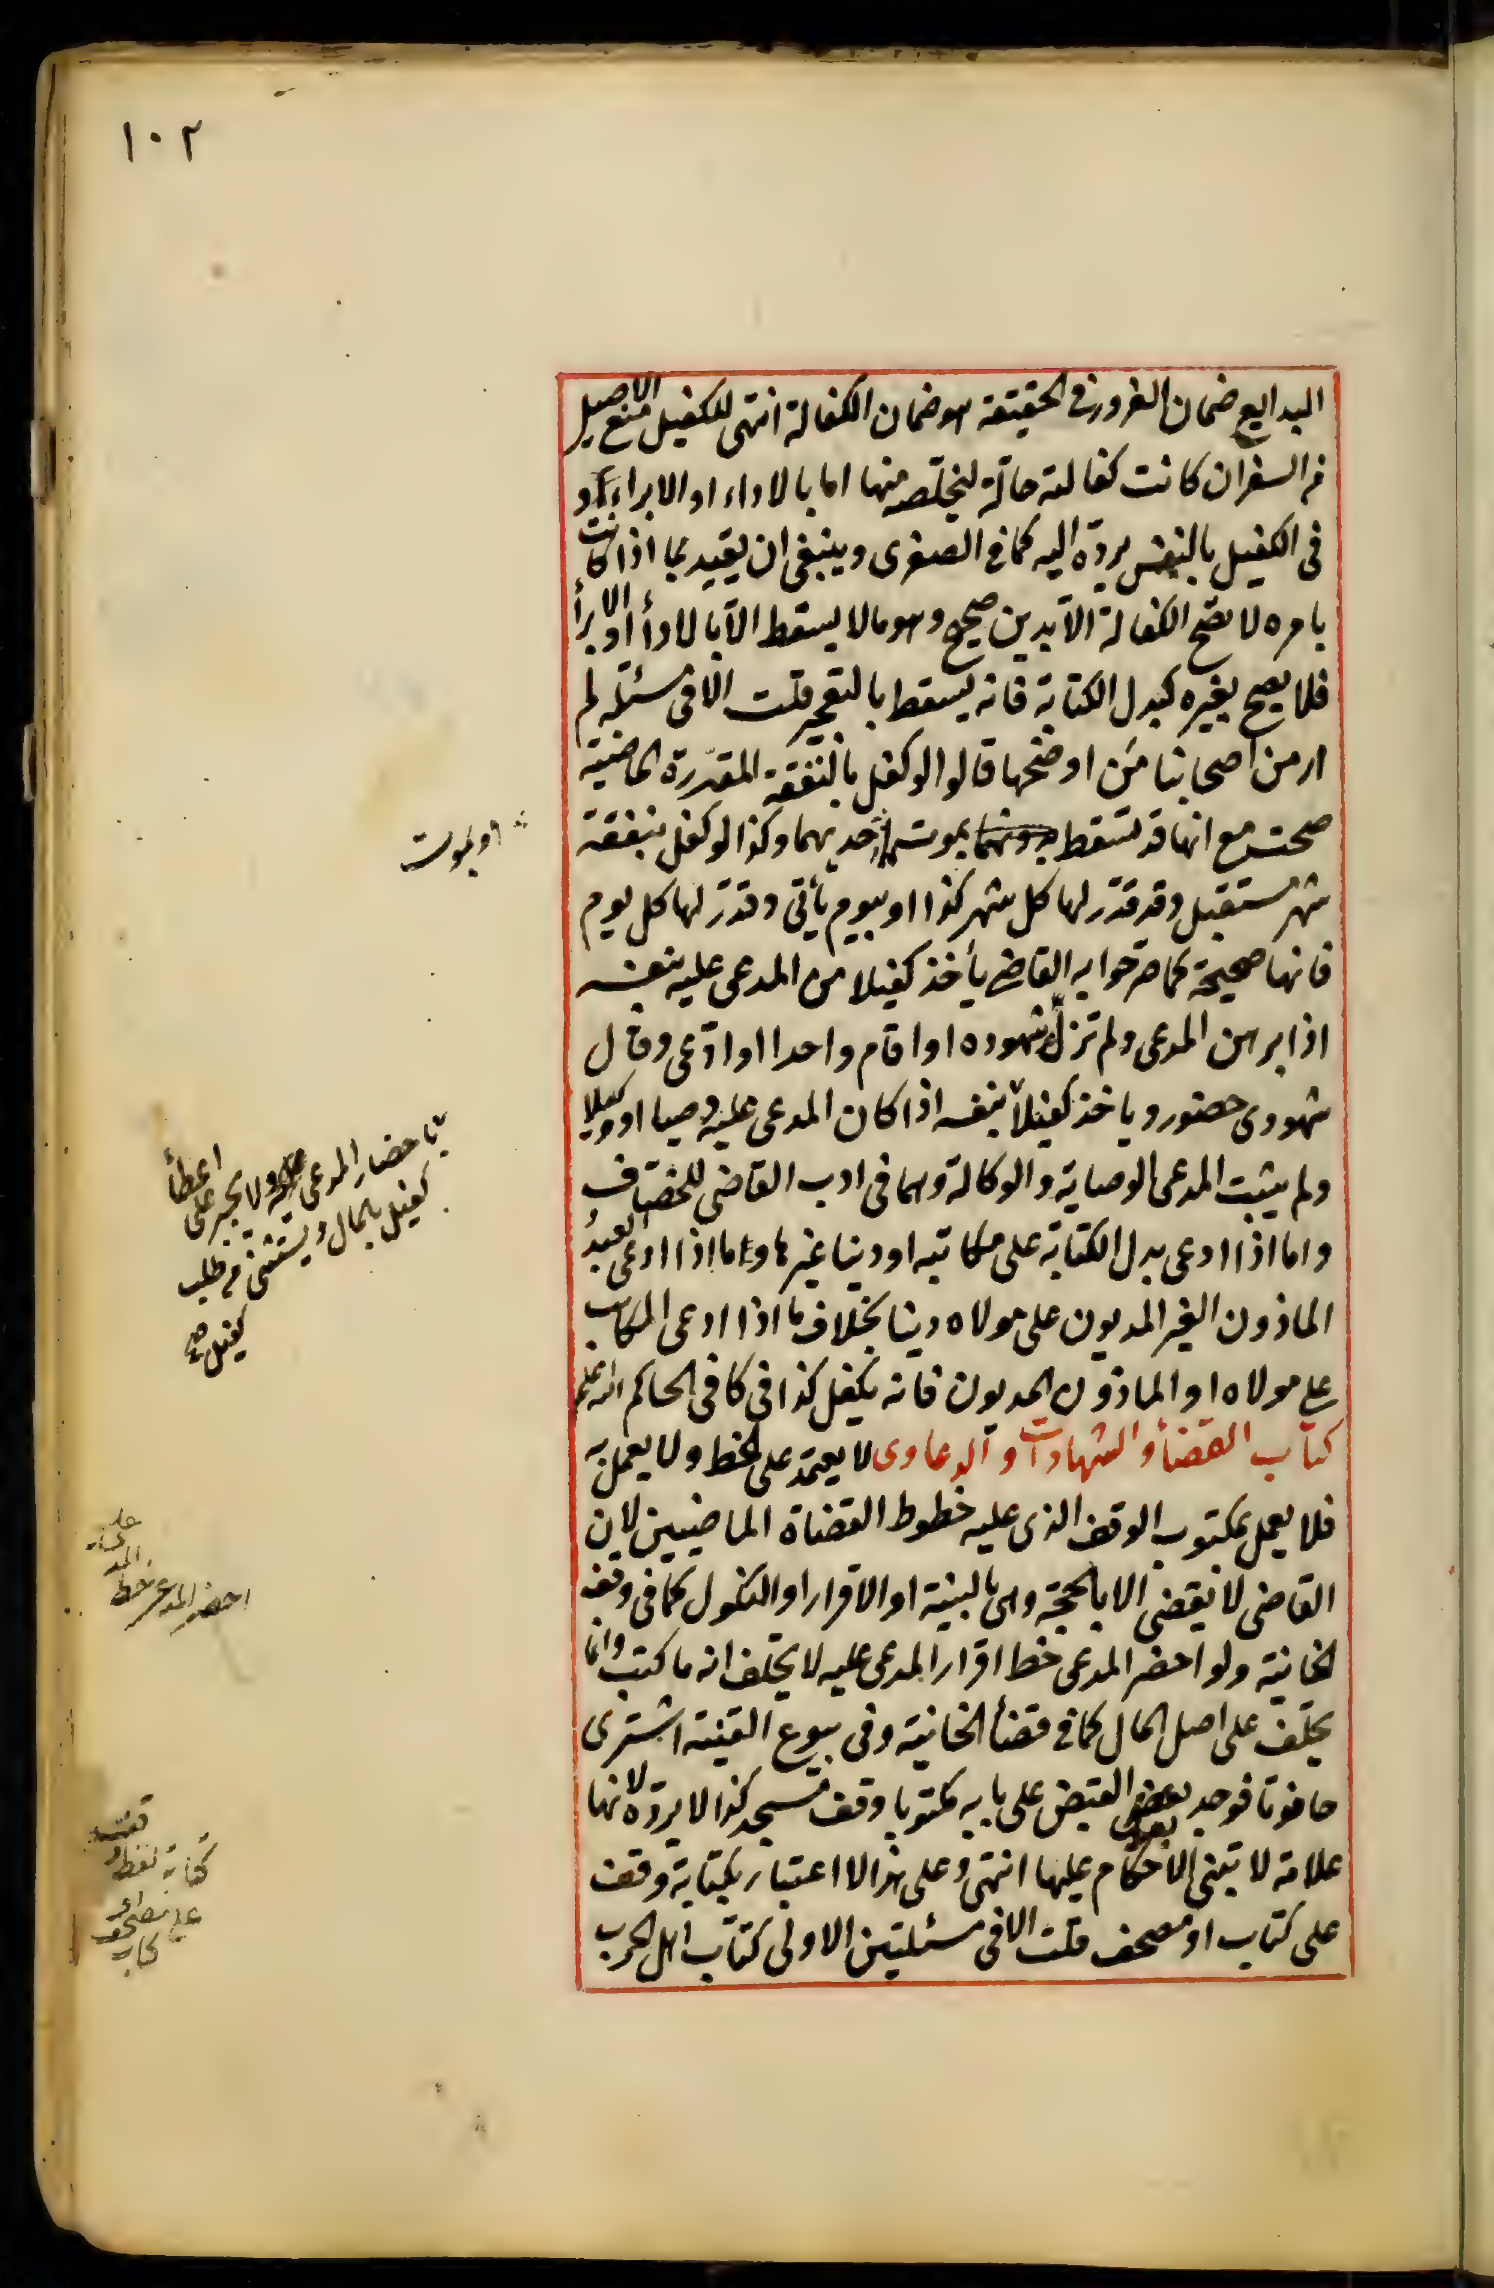 ١٠٢
البدايع ضمان الغرور في الحقيقة هو ضمان الكفالة انتهى للكفيل منع الاصيل
من السفر ان كانت كفالته حالة ليخلصه منها اما بالاداء او الابراء او
في الكفيل بالنفس يرده اليه كما في الصغرى وينبغى ان يقيد بما اذا كانت
بامره لا تصح الكفالة الا بدين صحيح وهو ما لا يسقط الا بالادأ او الابرأ
فلا يصح بغيره كبدل الكتابة فانه يسقط بالتعجيز قلت الا في مسئلة لم
ار من اصحابنا من اوضحها قالوا لو كفل بالنفقة المقدرة الماضية
صحت مع انها قد تسقط بدونهما بموت احدهما وكذا لو كفل بنفقة
شهر مستقبل وقد قدر لها كل شهر كذا او بيوم يأتى وقدر لها كل يوم
فانها صحيحة كما صرحوا به القاضى يأخذ كفيلا من المدعى عليه بنفسه
اذا برهن المدعى ولم تزك شهوده او اقام واحدا او ادعى وقال
شهودى حضور وياخذ كفيلا بنفسه اذا كان المدعى عليه وصيا او وكيلا
ولم يثبت المدعى الوصاية والوكالة وهما في ادب القاضى للخصاف
واما اذا ادعى بدل الكتابة على مكاتبه او دينا غيرها واما اذا ادعى العبد
الماذون الغير المديون على مولاه دينا بخلاف ما اذا ادعى المكاتب
على مولاه او الماذون المديون فانه يكفل كذا في كافى الحاكم الله اعلم
كتاب القضأ والشهادات والدعاوى لا يعتمد على الخط ولا يعمل به
فلا يعمل بمكتوب الوقف الذى عليه خطوط القضاة الماضيين لان
القاضى لا يقضى الا بالحجة وهى بالبينة او الاقرار او النكول كما في وقف
الخانية ولو احضر المدعى خط اقرار المدعى عليه لا يحلف انه ما كتب وانما
يحلف على اصل المال كما في قضأ الخانية وفى بيوع القنية اشترى
حانوتا فوجد بعد القبض على بابه مكتوبا وقف مسجد كذا لا يرده لانها
علامة لا تبنى الاحكام عليها انتهى وعلى هذا لا اعتبار بكتابة وقف
على كتاب او مصحف قلت الا في مسئلتين الاولى كتاب اهل الحرب
او بموت
باحضار المدعى ولا يجبر على اعطأ
كفيل بالمال ويستثنى من طلب
كفيل
احضر المدعى خط
كتابة
على مصحف او
كتاب